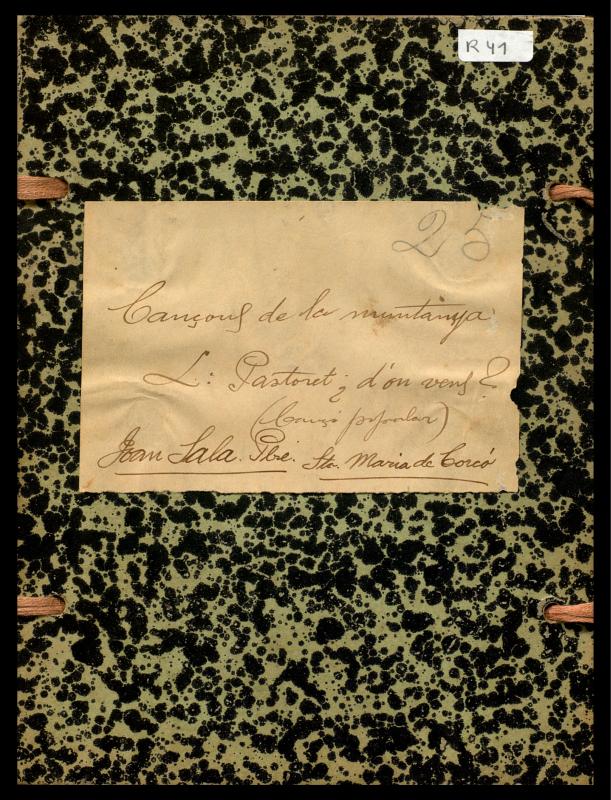 R 41
25
Cançons de la muntanya
L: Pastoret ¿ d'ón vens?
(Cançó popular)
Joan Sala. Pbre. Sta. Maria de Corcó